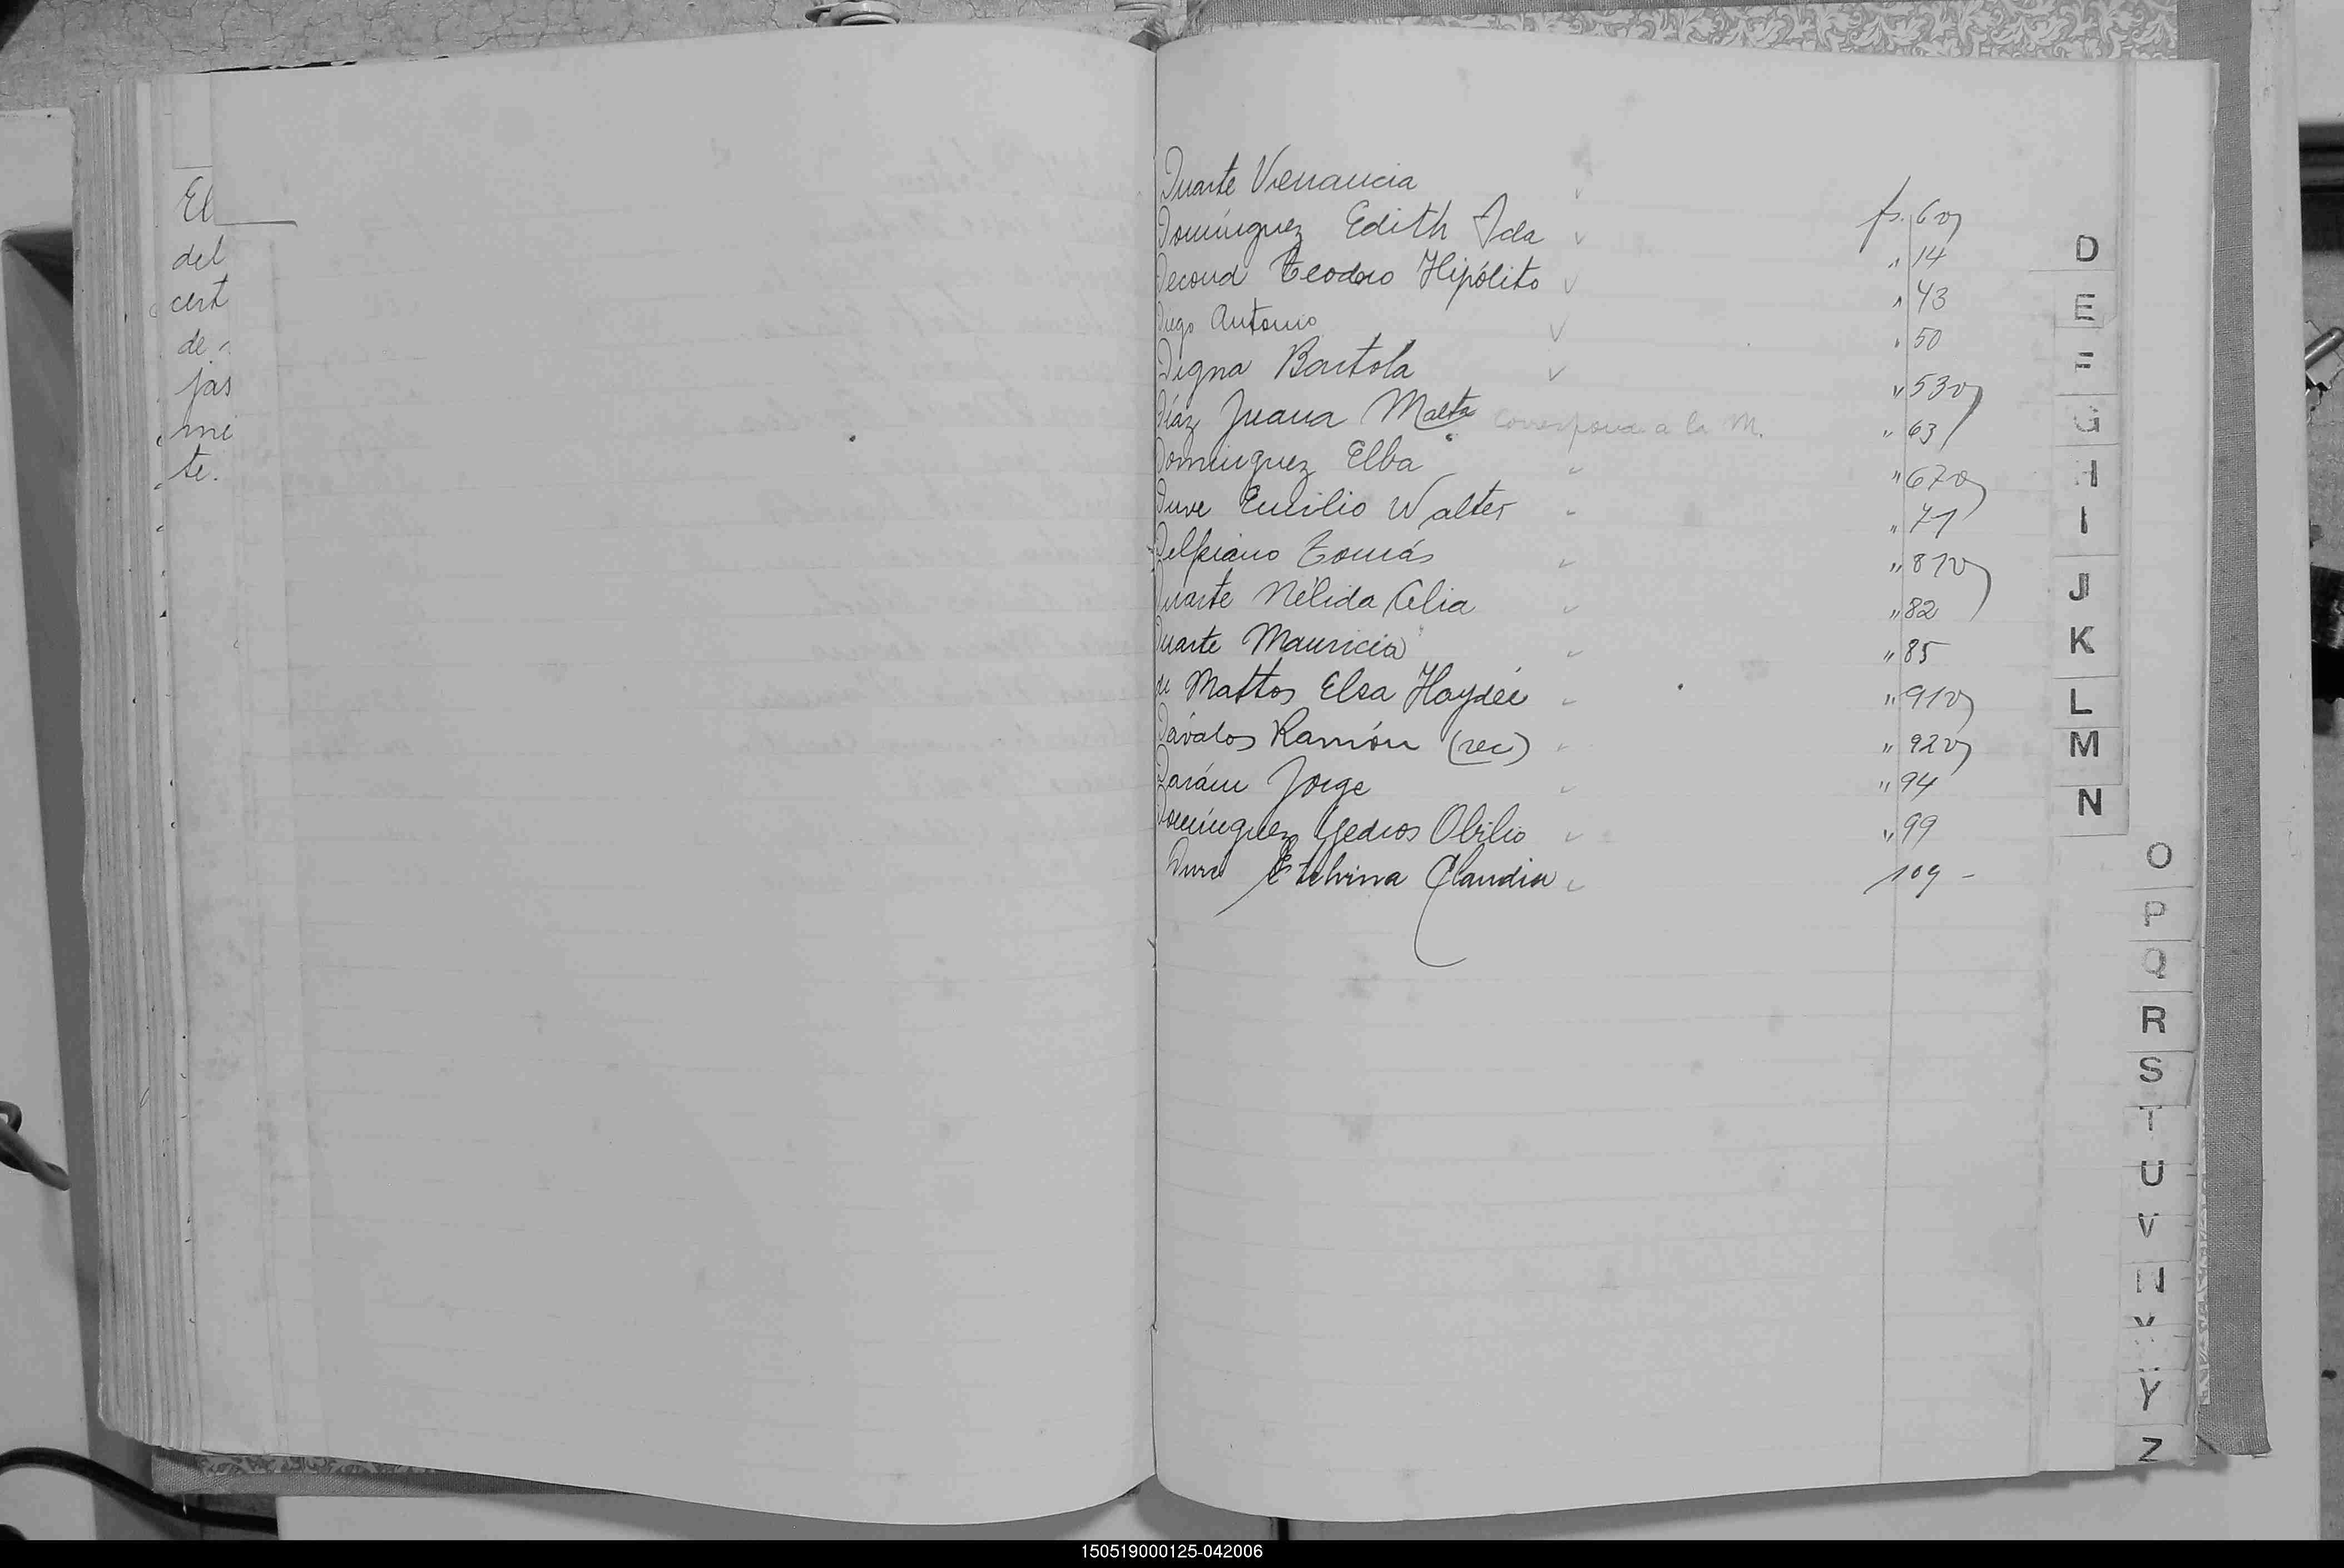 El
del
cert
de
jas
mi
te.
Duarte Venancia fs. 6v
Domínguez Edith Ida " 14
Decoud Teodoro Hipólito " 43
Diego Antonio " 50
Digna Bartola " 53v
Díaz Juana Marta corresponde a la M. " 63
Domínguez Elba " 67v
Duve Emilio Walter " 71
Delpiano Tomás " 81v
Duarte Nélida Celia " 82
Duarte Mauricia " 85
de Mattos Elsa Haydée " 91v
Dávalos Ramón (rec) " 92v
Darám Jorge " 94
Domínguez Obilio " 99
Claudia 109 -
D
E
F
G
H
I
J
K
L
M
N
O
P
Q
R
S
T
U
V
W
X
Y
Z
150519000125-042006